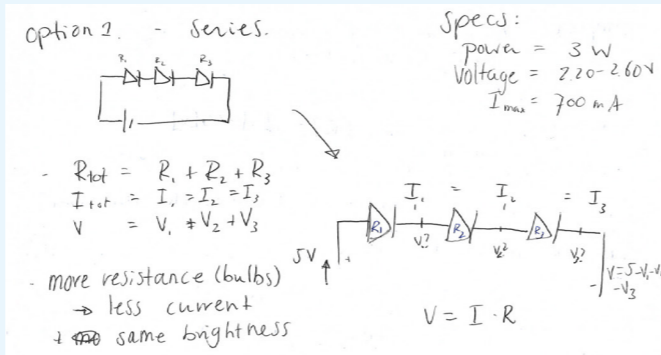 option 1. - Series.
R₁ R₂ R₃
Rtot = R₁ + R₂ + R₃
Itot = I₁ = I₂ = I₃
V = V₁ + V₂ + V₃
- more resistance (bulbs)
→ less current
+ same brightness
Specs:
power = 3 W
Voltage = 2.20-2.60V
Imax = 700 mA
I₁ = I₂ = I₃
R₁ R₂ R₃
5V + V₁? V₂? V₃?
V=5-V₁-V
-V₃
V = I · R